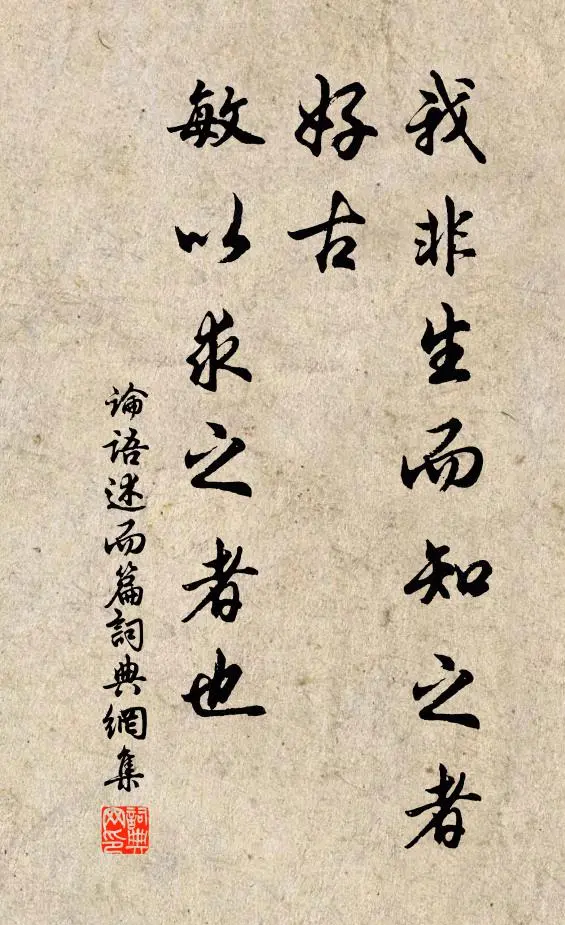 我非生而知之者
好古
敏以求之者也
论语述而篇詞典網集
詞典网印